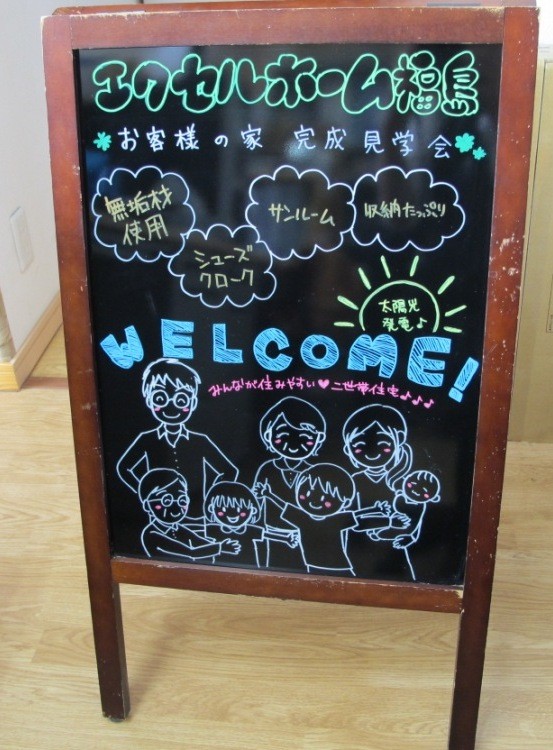 エクセルホーム福島
お客様の家 完成見学会
無垢材
使用
シューズ
クローク
サンルーム
収納たっぷり
太陽光
発電♪
WELCOME!
みんなが住みやすい♥二世帯住宅♪♪♪